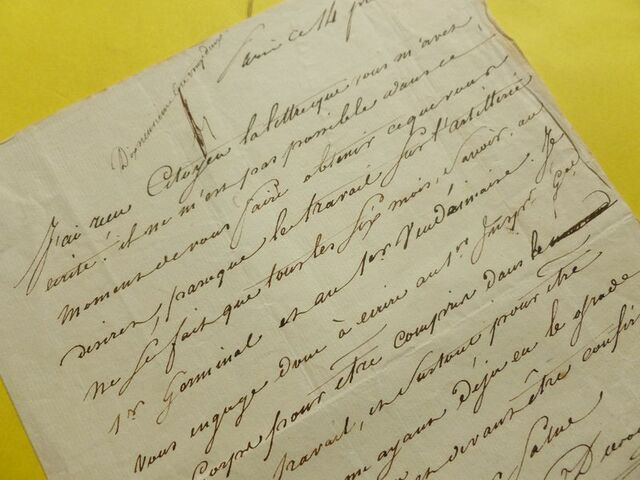 Paris ce 14
J'ai reçu Citoyen la lettre que vous m'avez
ecrité. il ne m'est pas possible dans ce
moment de vous faire obtenir ce que vous
desirez, parceque le travail sur l'artillerie
ne se fait que tous les six mois, Savoir, au
1er Germinal et au 1er Vendémiaire. Je
vous engage donc à ecrire au 1er Inspr Gal
Corps pour être compris dans le
travail, et surtout pour être
me ayant déja eu le grade
et devant être confir
Salue